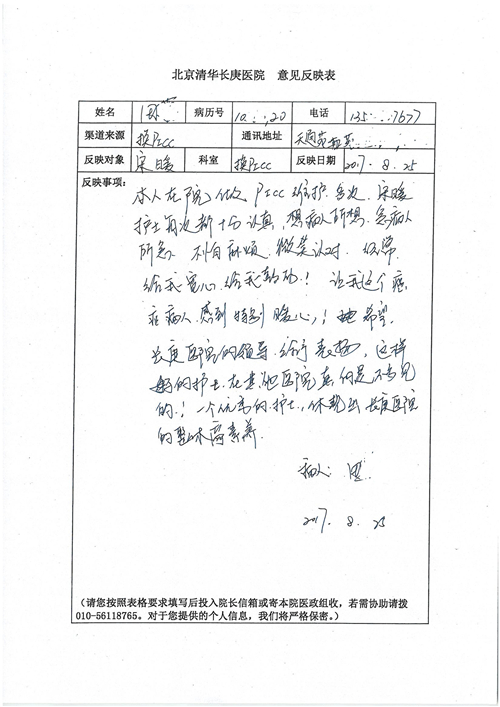 北京清华长庚医院 意见反映表
姓名 病历号 电话 135 7677
渠道来源 换PICC 通讯地址 天通苑
反映对象 宋暖 科室 换PICC 反映日期 2017.8.25
反映事项:
本人在院做PICC维护多次,宋暖
护士每次都十分认真,想病人所想,急病人
所急,不怕麻烦,微笑认对,经常
给我宽心,给我帮助!让我这个癌
症病人,感到特别暖心,!希望
长庚医院的领导,给于表扬,这样
好的护士在其他医院真的是不多见
的!一个优秀的护士,体现出长庚医院
的整体高素养.
病人:
2017.8.25
(请您按照表格要求填写后投入院长信箱或寄本院医政组收,若需协助请拨
010-56118765。对于您提供的个人信息,我们将严格保密。)